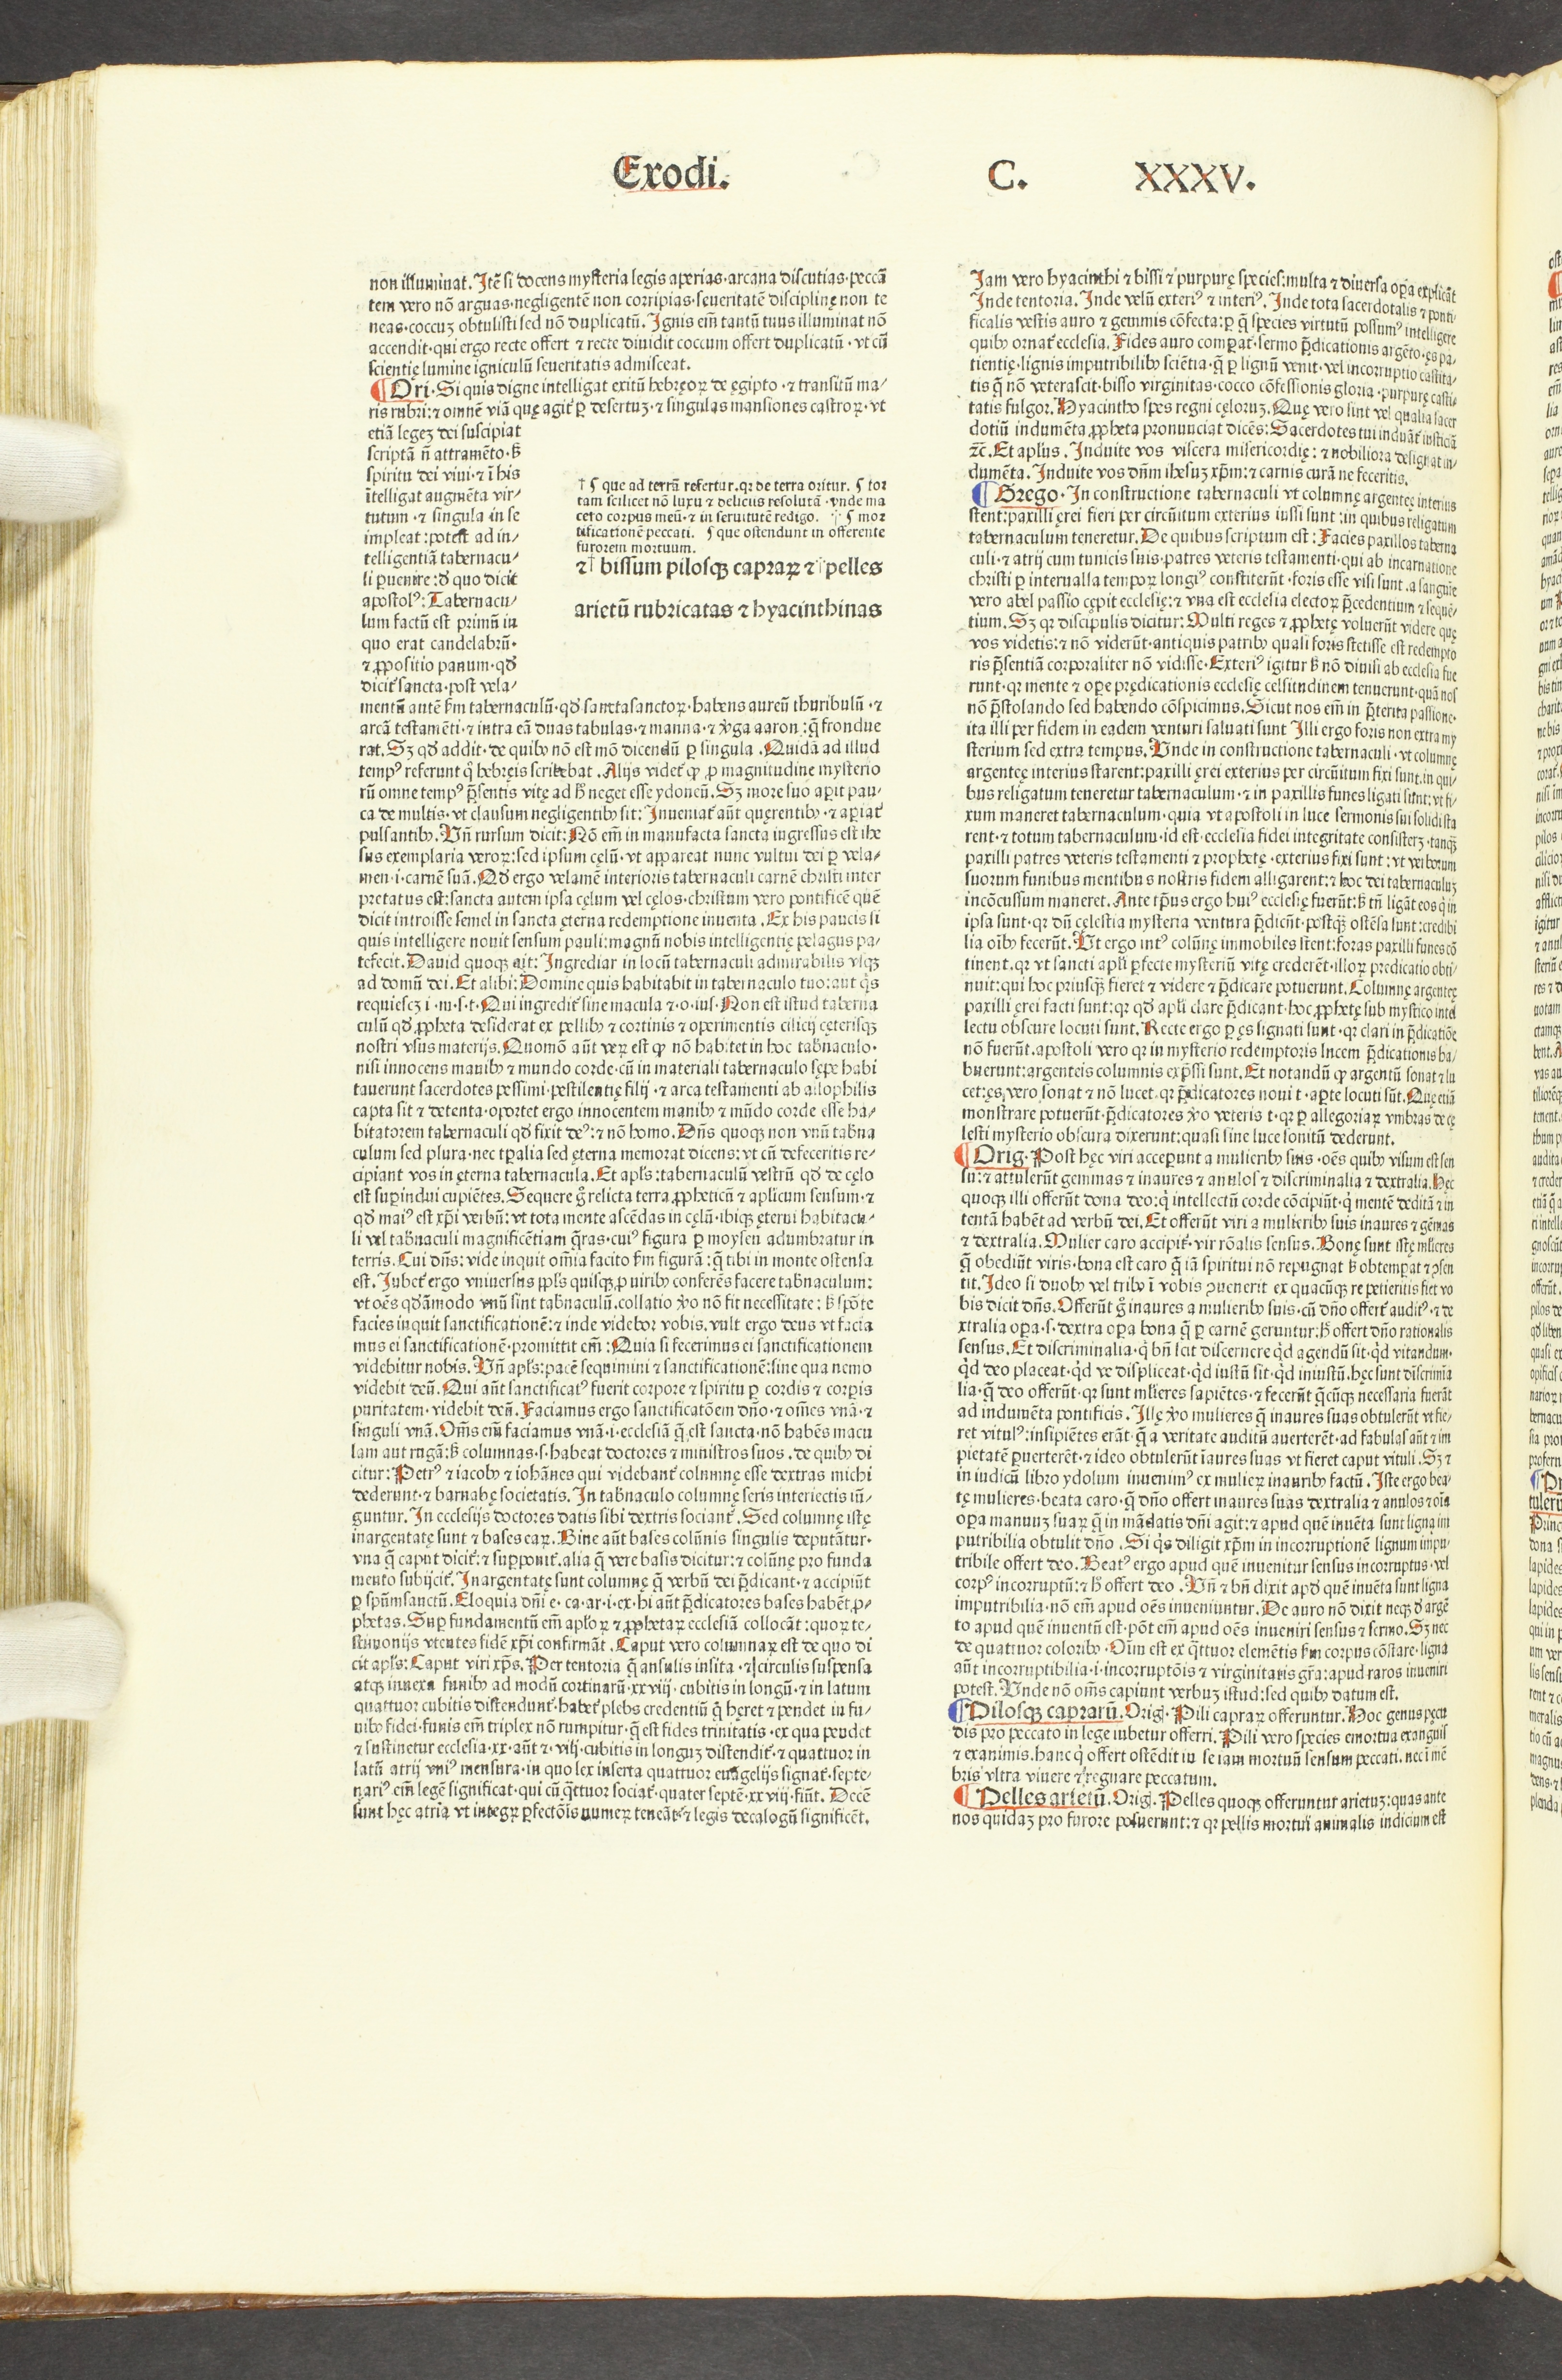 Exodi.
C. XXXV.
non illuminat. Itē si docens mysteria legis aperias·arcana discutias·peccā
tem vero nō arguas·negligentē non corripias·seueritatē disciplinę non te
neas·coccuz obtulisti sed nō duplicatū. Ignis em̄ tantū tuus illuminat nō
accendit·qui ergo recte offert ⁊ recte diuidit coccum offert duplicatū·vt cū
scientię lumine igniculū seueritatis admisceat.
¶ Ori·Si quis digne intelligat exitū hebręoꝝ de ęgipto·⁊ transitū ma/
ris rubri:⁊ omnē viā quę agit̄ ꝑ desertuz·⁊ singulas mansiones castroꝝ·vt
etiā legez dei suscipiat
scriptā n̄ attramēto·s̄
spiritu dei viui·⁊ ī his
ītelligat augmēta vir/
tutum·⁊ singula in se
impleat:potest ad in/
telligentiā tabernacu/
li ꝑuenire:d̄ quo dicit
apostolꝰ:Tabernacu/
lum factū est primū in
quo erat candelabrū·
⁊ ꝓpositio panum·qd̄
dicit̄ sancta·post vela/
† ¶ que ad terrā refertur.qꝛ de terra oritur. ¶ tor
tam scilicet nō luxu ⁊ delicijs resolutā·vnde ma
cero corpus meū·⁊ in seruitutē redigo. † ¶ mor
tificationē peccati. ¶ que ostendunt in offerente
furorem mortuum.
⁊† bissum pilosqꝫ capraꝝ ⁊†pelles
arietū rubricatas ⁊ hyacinthinas
mentū autē s̄m tabernaculū·qd̄ sanctasanctoꝝ·habens aureū thuribulū·⁊
arcā testamēti·⁊ intra eā duas tabulas·⁊ manna·⁊ v̄ga aaron:q̄ frondue
rat.Sꝫ qd̄ addit·de quibꝰ nō est mō dicendū ꝑ singula.Quidā ad illud
tempꝰ referunt qͥ hebręis scribebat.Alijs videt̄ ꝙ ꝓ magnitudine mysterio
rū omne tempꝰ p̄sentis vitę ad h̄ neget esse ydoneū.Sꝫ more suo aꝑit pau/
ca de multis·vt clausum negligentibꝰ sit:Inueniat̄ aūt quęrentibꝰ·⁊ aꝑiat̄
pulsantibꝰ.Vn̄ rursum dicit:Nō em̄ in manufacta sancta ingressus est ihe
sus exemplaria veroꝝ:sed ipsum cęlū·vt appareat nunc vultui dei ꝑ vela/
men·i·carnē suā.Qd̄ ergo velamē interioris tabernaculi carnē christi inter
pretatus est:sancta autem ipsa cęlum vel cęlos·christum vero pontificē quē
dicit introisse semel in sancta ęterna redemptione inuenta.Ex his paucis si
quis intelligere nouit sensum pauli:magnū nobis intelligentię pelagus pa/
tefecit.Dauid quoqꝫ ait:Ingrediar in locū tabernaculi admirabilis vsqꝫ
ad domū dei.Et alibi:Domine quis habitabit in tabernaculo tuo:aut qͥs
requiescꝫ i·m·s·t·Qui ingredit̄ sine macula ⁊·o·ius·Non est istud taberna
culū qd̄ ꝓpheta desiderat ex pellibꝰ ⁊ cortinis ⁊ operimentis cilicij cęterisqꝫ
nostri vsus materijs.Quomō aūt veꝝ est ꝙ nō habitet in hoc tab̄naculo·
nisi innocens manibꝰ ⁊ mundo corde·cū in materiali tabernaculo sępe habi
tauerunt sacerdotes pessimi·pestilentię filij·⁊ arca testamenti ab allophilis
capta sit ⁊ detenta·oportet ergo innocentem manibꝰ ⁊ mūdo corde esse ha/
bitatorem tabernaculi qd̄ fixit deꝰ:⁊ nō homo.Dn̄s quoqꝫ non vnū tab̄na
culum sed plura·nec tꝑalia sed ęterna memorat dicens:vt cū defeceritis re/
cipiant vos in ęterna tabernacula.Et apl̄s:tabernaculū vestrū qd̄ de cęlo
est suꝑindui cupiētes.Sequere gͦ relicta terra ꝓpheticū ⁊ aplicum sensum·⁊
qd̄ maiꝰ est xp̄i verbū:vt tota mente ascēdas in cęlū·ibiqꝫ ęterni habitacu/
li vel tab̄naculi magnificētiam q̄ras·cuiꝰ figura ꝑ moysen adumbratur in
terris.Cui dn̄s:vide inquit om̄ia facito s̄m figurā:q̄ tibi in monte ostensa
est.Iubet̄ ergo vniuersus ppl̄s quisqꝫ ꝓ viribꝰ conferēs facere tab̄naculum:
vt oēs qd̄āmodo vnū sint tab̄naculū.collatio v̄o nō fit necessitate:s̄ spōte
facies inquit sanctificationē:⁊ inde videbor vobis.vult ergo deus vt facia
mus ei sanctificationē·promittit em̄:Quia si fecerimus ei sanctificationem
videbitur nobis.Vn̄ apl̄s:pacē sequimini ⁊ sanctificationē:sine qua nemo
videbit deū.Qui aūt sanctificatꝰ fuerit corpore ⁊ spiritu ꝑ cordis ⁊ corꝑis
puritatem·videbit deū.Faciamus ergo sanctificatōem dn̄o·⁊ om̄es vnā·⁊
singuli vnā.Om̄s em̄ faciamus vnā·i·ecclesiā q̄ est sancta·nō habēs macu
lam aut rugā:s̄ columnas·s·habeat doctores ⁊ ministros suos.de quibꝰ di
citur:Petrꝰ ⁊ iacobꝰ ⁊ iohānes qui videbant̄ columnę esse dextras michi
dederunt·⁊ barnabę societatis.In tab̄naculo columnę seris interiectis iū/
guntur.In ecclesijs doctores datis sibi dextris sociant̄.Sed columnę istę
inargentatę sunt ⁊ bases eaꝝ.Bine aūt bases colūnis singulis deputātur·
vna q̄ caput dicit̄:⁊ suꝑponit̄.alia q̄ vere basis dicitur:⁊ colūnę pro funda
mento subijcit̄.Inargentatę sunt columnę q̄ verbū dei p̄dicant·⁊ accipiūt
ꝑ spūmsanctū.Eloquia dn̄i e·ca·ar·i·ex·hi aūt p̄dicatores bases habēt ꝓ/
phetas.Suꝑ fundamentū em̄ apl̄oꝝ ⁊ ꝓphetaꝝ ecclesiā collocāt:quoꝝ te/
stimonijs vtentes fidē xp̄i confirmāt.Caput vero columnaꝝ est de quo di
cit apl̄s:Caput viri xp̄s.Per tentoria q̄ ansulis insita·⁊ circulis suspensa
atqꝫ innexa funibꝰ ad modū cortinarū·xxviij·cubitis in longū·⁊ in latum
quattuor cubitis distendunt̄·habet̄ plebs credentiū q̄ hęret ⁊ pendet in fu/
nibꝰ fidei·funis em̄ triplex nō rumpitur·q̄ est fides trinitatis·ex qua pendet
⁊ sustinetur ecclesia·xx·aūt ⁊·viij·cubitis in longuz distendit̄·⁊ quattuor in
latū atrij vniꝰ mensura·in quo lex inserta quattuor euāgelijs signat̄·septe·
nariꝰ em̄ legē significat·qui cū q̄ttuor sociat̄·quater septē·xxviij·fiūt. Decē
sunt hęc atria vt integꝝ ꝑfectōis numeꝝ teneāt·⁊ legis decalogū significēt.
Iam vero hyacinthi ⁊ bissi ⁊ purpurę species:multa ⁊ diuersa oꝑa explicāt
Inde tentoria.Inde velū exteriꝰ ⁊ interiꝰ.Inde tota sacerdotalis ⁊ ponti·
ficalis vestis auro ⁊ gemmis cōfecta:ꝑ q̄ species virtutū possumꝰ intelligere
quibꝰ ornat̄ ecclesia.Fides auro comꝑat̄·sermo p̄dicationis argēto·ęs pa/
tientię·lignis imputribilibꝰ sciētia·q̄ ꝑ lignū venit·vel incorruptio castita/
tis q̄ nō veterascit·bisso virginitas·cocco cōfessionis gloria·purpurę casti/
tatis fulgor.Hyacintho spes regni cęloruz.Quę vero sint vel qualia sacer
dotiū indumēta ꝓpheta pronunciat dicēs:Sacerdotes tui induāt̄ iusticiā
⁊c̄.Et apl̄us.Induite vos viscera misericordię:⁊ nobiliora designat in/
dumēta.Induite vos dn̄m ihesuz xp̄m:⁊ carnis curā ne feceritis.
¶ Grego·In constructione tabernaculi vt columnę argentęę interius
stent:paxilli ęrei fieri per circuītum exterius iussi sunt:in quibus religatum
tabernaculum teneretur.De quibus scriptum est:Facies paxillos taberna
culi·⁊ atrij cum funicis suis·patres veteris testamenti·qui ab incarnatione
christi ꝑ interualla tempoꝝ longiꝰ constiterūt·foris esse visi sunt.a sanguīe
vero abel passio cępit ecclesię:⁊ vna est ecclesia electoꝝ p̄cedentium ⁊ sequē/
tium.Sꝫ qꝛ discipulis dicitur:Multi reges ⁊ ꝓphetę voluerūt videre quę
vos videtis:⁊ nō viderūt·antiquis patribꝰ quasi foris stetisse est redempto
ris p̄sentiā corporaliter nō vidisse·Exteriꝰ igitur s̄ nō diuisi ab ecclesia fue
runt·qꝛ mente ⁊ oꝑe prędicationis ecclesię celsitudinem tenuerunt·quā nos
nō p̄stolando sed habendo cōspicimus.Sicut nos em̄ in p̄terita passione·
ita illi per fidem in eadem venturi saluati sunt Illi ergo foris non extra my
sterium sed extra tempus.Vnde in constructione tabernaculi·vt columnę
argentęę interius starent:paxilli ęrei exterius per circuītum fixi sunt.in qui/
bus religatum teneretur tabernaculum·⁊ in paxillis funes ligati sunt:vt fi/
xum maneret tabernaculum·quia vt apostoli in luce sermonis sui solidi sta
rent·⁊ totum tabernaculum·id est·ecclesia fidei integritate consisterꝫ·tanqꝫ
paxilli patres veteris testamenti ⁊ prophetę·exterius fixi sunt:vt verborum
suorum funibus mentibus nostris fidem alligarent:⁊ hoc dei tabernaculuz
incōcussum maneret.Ante tp̄us ergo huiꝰ ecclesię fuerūt:s̄ tn̄ ligāt eos qͥ in
ipsa sunt·qꝛ dū cęlestia mysteria ventura p̄dicūt·postqꝫ ostēsa sunt:credibi
lia oībꝰ fecerūt.Vt ergo intꝰ colūnę immobiles stent:foras paxilli funes cō
tinent.qꝛ vt sancti apl̄i ꝑfecte mysteriū vitę crederēt·illoꝝ predicatio obti/
nuit:qui hoc priusqꝫ fieret ⁊ videre ⁊ p̄dicare potuerunt.Columnę argentęę
paxilli ęrei facti sunt:qꝛ qd̄ apl̄i clare p̄dicant·hoc ꝓphetę sub mystico intel
lectu obscure locuti sunt.Recte ergo ꝑ ęs signati sunt·qꝛ clari in p̄dicatiōe
nō fuerūt.apostoli vero qꝛ in mysterio redemptoris lucem p̄dicationis ha/
buerunt:argenteis columnis exp̄ssi sunt.Et notandū ꝙ argentū sonat ⁊ lu
cet:ęs vero sonat ⁊ nō lucet·qꝛ p̄dicatores noui t·aꝑte locuti sūt.Quę etiā
monstrare potuerūt·p̄dicatores v̄o veteris t·qꝛ ꝑ allegoriaꝝ vmbras de cę
lesti mysterio obscura dixerunt:quasi sine luce sonitū dederunt.
¶ Orig·Post hęc viri acceꝑunt a mulieribꝰ suis·oēs quibꝰ visum est sen
su:⁊ attulerūt gemmas ⁊ inaures ⁊ anulos ⁊ discriminalia ⁊ dextralia.Hęc
quoqꝫ illi offerūt dona deo:qͥ intellectū corde cōcipiūt·qͥ mentē deditā ⁊ in
tentā habēt ad verbū dei.Et offerūt viri a mulieribꝰ suis inaures ⁊ gēmas
⁊ dextralia.Mulier caro accipit̄·vir rōalis sensus.Bonę sunt istę ml̄ieres
q̄ obediūt viris·bona est caro q̄ iā spiritui nō repugnat s̄ obtemꝑat ⁊ ꝯsen
tit.Ideo si duobꝰ vel tribꝰ ī vobis ꝯuenerit ex quacūqꝫ re petieritis fiet vo
bis dicit dn̄s.Offerūt gͦ inaures a mulieribꝰ suis·cū dn̄o offert̄ auditꝰ·⁊ de
xtralia oꝑa·s·dextra oꝑa bona q̄ ꝑ carnē geruntur:h̄ offert dn̄o rationalis
sensus.Et discriminalia·qͥ bn̄ scit discernere qͥd agendū sit·qͥd vitandum·
qͥd deo placeat·qͥd ve displiceat·qͥd iustū sit·qͥd iniustū.hęc sunt discrimīa
lia·q̄ deo offerūt·qꝛ sunt ml̄ieres sapiētes·⁊ fecerūt q̄cūqꝫ necessaria fuerāt
ad indumēta pontificis.Illę v̄o mulieres q̄ inaures suas obtulerūt vt fie/
ret vitulꝰ:insipiētes erāt·q̄ a veritate auditū auerterēt·ad fabulas aūt ⁊ im
pietatē ꝑuerterēt·⁊ ideo obtulerūt īaures suas vt fieret caput vituli.Sꝫ ⁊
in iudicū libro ydolum inuenimꝰ ex mulieꝝ inauribꝰ factū.Iste ergo bea/
tę mulieres·beata caro·q̄ dn̄o offert inaures suas dextralia ⁊ anulos ⁊ oīa
oꝑa manuuz suaꝝ q̄ in mādatis dn̄i agit:⁊ apud quē inuēta sunt ligna im
putribilia obtulit dn̄o.Si qͥs diligit xp̄m in incorruptionē lignum impu/
tribile offert deo.Beatꝰ ergo apud quē inuenitur sensus incorruptus·vel
corpꝰ incorruptū:⁊ h̄ offert deo.Vn̄ ⁊ bn̄ dixit apd̄ quē inuēta sunt ligna
imputribilia·nō em̄ apud oēs inueniuntur.De auro nō dixit neqꝫ d̄ argē
to apud quē inuentū est·pōt em̄ apud oēs inueniri sensus ⁊ sermo.Sꝫ nec
de quattuor coloribꝰ·Oīm est ex q̄ttuor elemētis s̄m corpus cōstare·ligna
aūt incorruptibilia·i·incorruptōis ⁊ virginitatis gr̄a:apud raros inueniri
potest.Vnde nō om̄s capiunt verbuz istud:sed quibꝰ datum est.
¶ Pilosqꝫ caprarū.Orig.Pili capraꝝ offeruntur.Hoc genus pęcu
dis pro peccato in lege iubetur offerri.Pili vero species emortua exanguis
⁊ exanimis.hanc qͥ offert ostēdit in se iam mortuū sensum peccati.nec ī mē
bris vltra viuere ⁊ regnare peccatum.
¶ Pelles arietū.Orig.Pelles quoqꝫ offeruntur arietuz:quas ante
nos quidaz pro furore posuerunt:⁊ qꝛ pellis mortui animalis indicium est